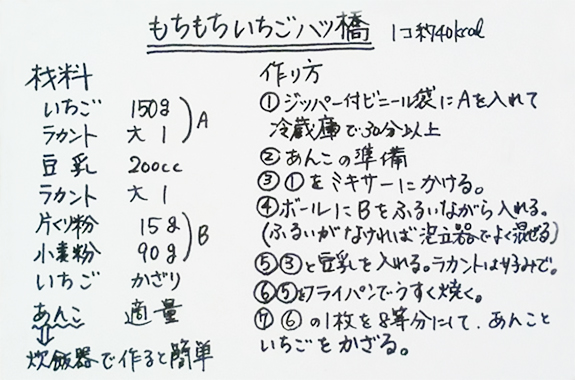 もちもちいちご八ッ橋 1コ約40kcal
材料
いちご 150g
ラカント 大1
A
豆乳 200cc
ラカント 大1
片くり粉 15g
小麦粉 90g
B
いちご かざり
あんこ 適量
炊飯器で作ると簡単
作り方
①ジッパー付ビニール袋にAを入れて
冷蔵庫で30分以上
②あんこの準備
③①をミキサーにかける。
④ボールにBをふるいながら入れる。
(ふるいがなければ泡立器でよく混ぜる)
⑤③と豆乳を入れる。ラカントは好みで。
⑥⑤をフライパンでうすく焼く。
⑦⑥の1枚を8等分にして、あんこと
いちごをかざる。